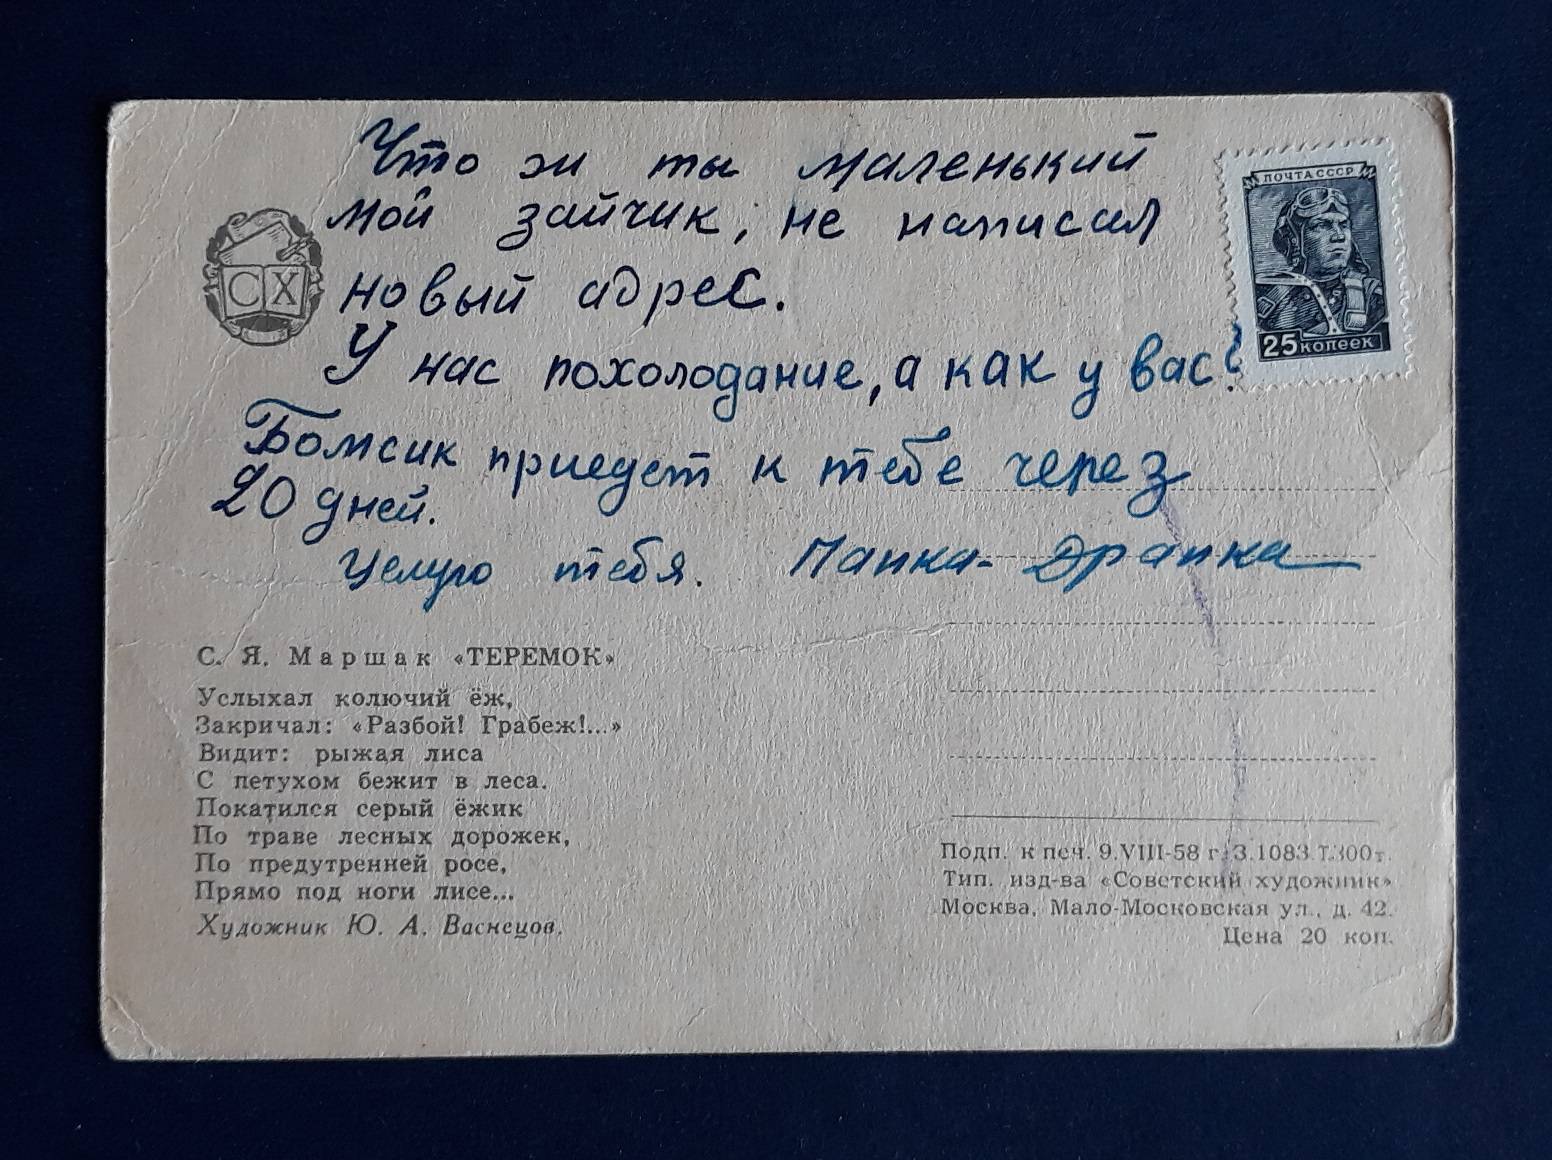 Что ж ты маленький
мой зайчик, не написал
новый адрес.
У нас похолодание, а как у вас?
Бомсик приедет к тебе через
20 дней.
Целую тебя. Папка-Драпка
ПОЧТА СССР
25 копеек
СХ
С. Я. Маршак «ТЕРЕМОК»
Услыхал колючий ёж,
Закричал: «Разбой! Грабеж!...»
Видит: рыжая лиса
С петухом бежит в леса.
Покатился серый ёжик
По траве лесных дорожек,
По предутренней росе,
Прямо под ноги лисе...
Художник Ю. А. Васнецов.
Подп. к печ. 9.VIII-58 г. З.1083 Т.300т.
Тип. изд-ва «Советский художник»
Москва, Мало-Московская ул., д. 42.
Цена 20 коп.